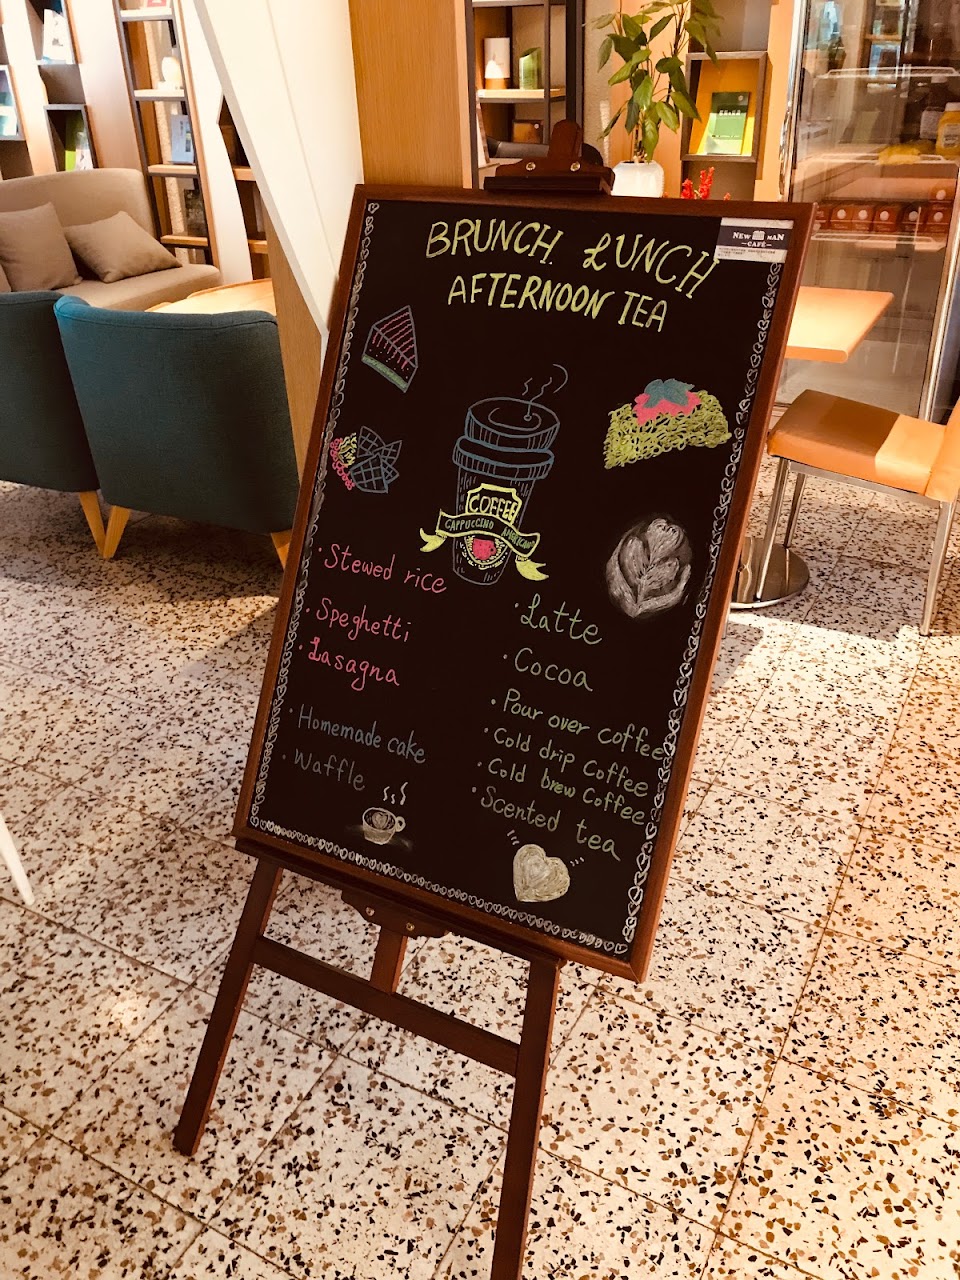 BRUNCH. LUNCH
AFTERNOON TEA
NEW MAN
CAFÉ
COFFEE
CAPPUCCINO AMERICANO
· Stewed rice
· Speghetti
· Lasagna
· Homemade cake
· Waffle
· Latte
· Cocoa
· Pour over coffee
· Cold drip Coffee
· Cold brew Coffee
· Scented tea